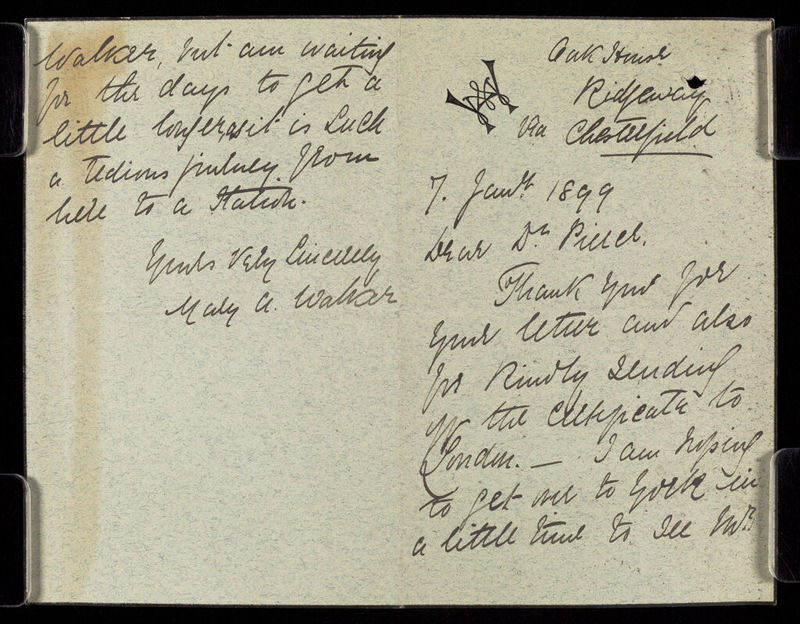 Oak House
Ridgeway
Via Chesterfield
7. Jany. 1899
Dear Dr. Pierce.
Thank you for
your letter and also
for kindly sending
up the certificate to
London. — I am hoping
to get over to York in
a little time to see Mr.
Walker, but am waiting
for the days to get a
little longer, as it is such
a tedious journey from
here to a station.
Yours very sincerely
Mary A. Walker